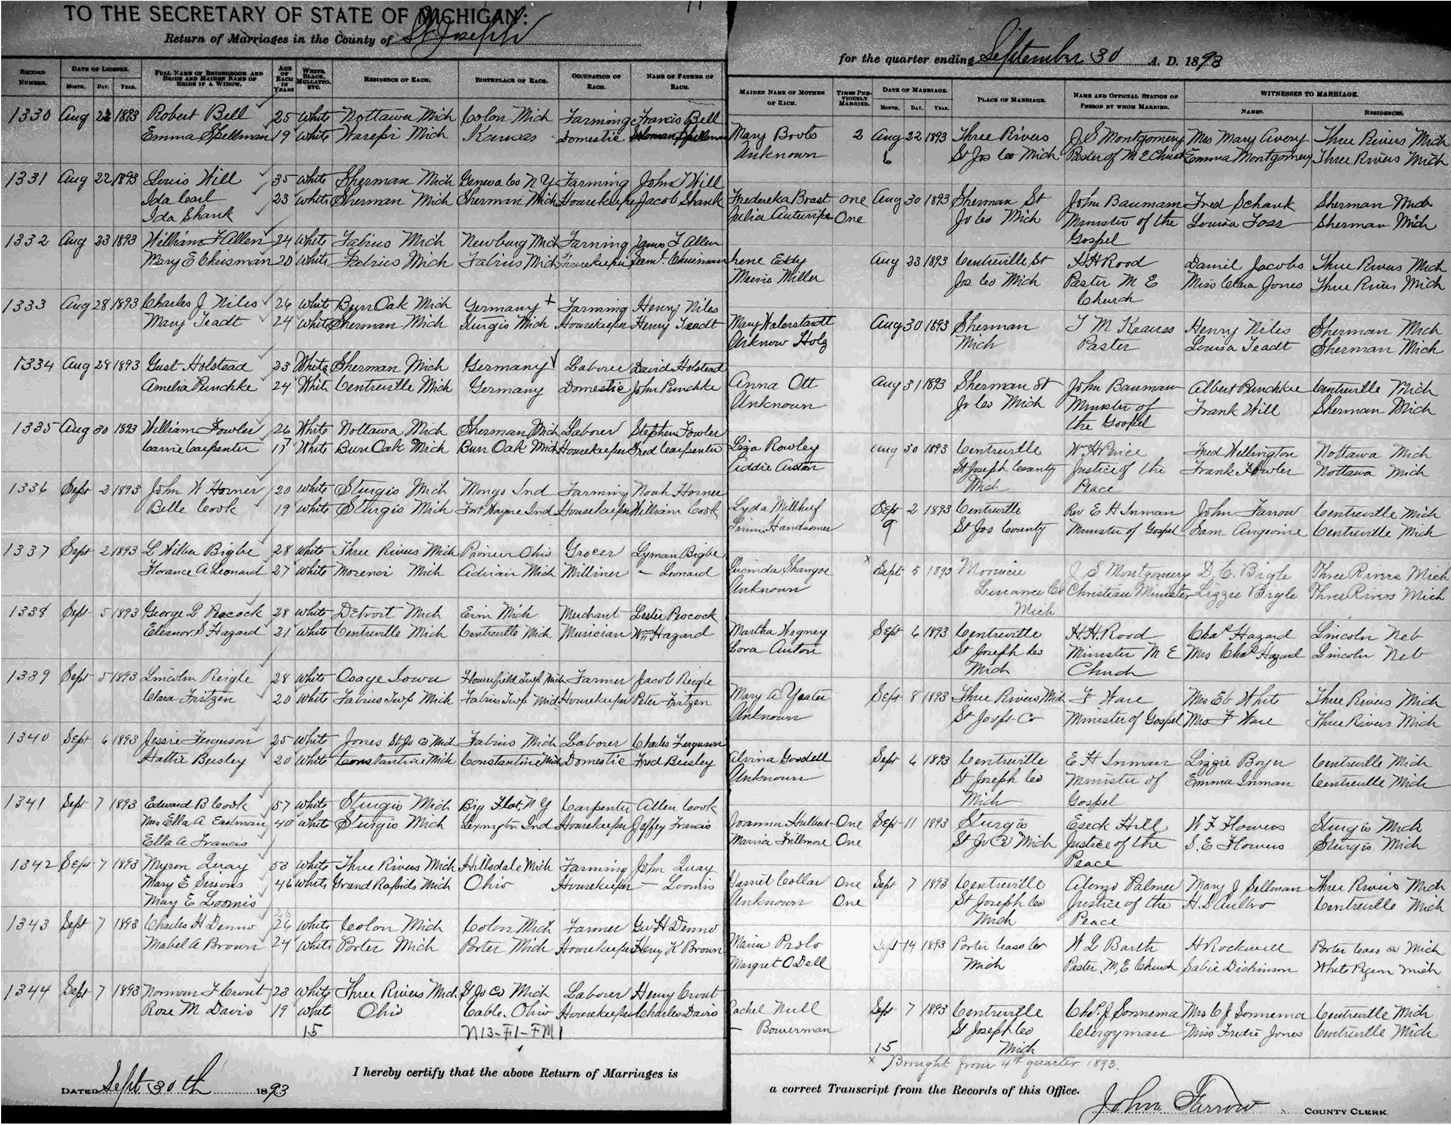 TO THE SECRETARY OF STATE OF MICHIGAN:
Return of Marriages in the County of St Joseph
for the quarter ending September 30 A. D. 1893
RECORD NUMBER.
DATE OF LICENSE.
MONTH. DAY. YEAR.
FULL NAME OF BRIDEGROOM AND BRIDE AND MAIDEN NAME OF BRIDE IF A WIDOW.
AGE OF EACH IN YEARS
WHITE, BLACK, MULATTO, ETC.
RESIDENCE OF EACH.
BIRTHPLACE OF EACH.
OCCUPATION OF EACH.
NAME OF FATHER OF EACH.
MAIDEN NAME OF MOTHER OF EACH.
TIMES PREVIOUSLY MARRIED.
DATE OF MARRIAGE.
MONTH. DAY. YEAR.
PLACE OF MARRIAGE.
NAME AND OFFICIAL STATION OF PERSON BY WHOM MARRIED.
WITNESSES TO MARRIAGE.
NAMES. RESIDENCES.
1330 Aug 22 1893 Robert Bell 25 White Nottawa Mich Colon Mich Farming Francis Bell
Emma Spellman 19 White Wasepi Mich Kansas Domestic Soloman Spellman
Mary Boots 2 Aug 22 1893 Three Rivers J S Montgomery Mrs Mary Avery Three Rivers Mich
Unknown 6 St Jos Co Mich Pastor of M E Church Emma Montgomery Three Rivers Mich
1331 Aug 22 1893 Louis Will 35 White Sherman Mich Geneva Co N Y Farming John Will
Ida Carl 23 White Sherman Mich Sherman Mich Housekeeper Jacob Shank
Ida Shank
Fredereka Boast one Aug 30 1893 Sherman St John Bauman Fred Schank Sherman Mich
Julia One Jo Co Mich Minister of the Louisa Foss Sherman Mich
Gospel
1332 Aug 23 1893 William F Allen 24 White Fabius Mich Newburg Mich Farming James F Allen
Mary E Chrisman 20 White Fabius Mich Fabius Mich Housekeeper Saml. Chrisman
Irene Eddy Aug 23 1893 Centreville St H H Rood Daniel Jacobs Three Rivers Mich
Miller Jo Co Mich Pastor M E Miss Clara Jones Three Rivers Mich
Church
1333 Aug 28 1893 Charles J Niles 26 White Burr Oak Mich Germany + Farming Henry Niles
Mary Teadt 24 White Sherman Mich Sturgis Mich Housekeeper Henry Teadt
Mary Halerstardt Aug 30 1893 Sherman J M Krauss Henry Niles Sherman Mich
Unknow Holz Mich Pastor Louisa Teadt Sherman Mich
1334 Aug 29 1893 Gust Holstead 23 White Sherman Mich Germany Laborer David Holstead
Amelia Punchke 24 White Centreville Mich Germany Domestic John Punchke
Anna Ott Aug 31 1893 Sherman St John Bauman Albert Punchke Centreville Mich
Unknown Jo Co Mich Minister of Frank Will Sherman Mich
the Gospel
1335 Aug 30 1893 William Fowler 26 White Nottawa Mich Sherman Mich Laborer Stephen Fowler
Carrie Carpenter 17 White Burr Oak Mich Burr Oak Mich Housekeeper Fred Carpenter
Liza Rowley Aug 30 1893 Centreville Wm H Price Fred Wellington Nottawa Mich
Liddie Austin St Joseph County Justice of the Frank Fowler Nottawa Mich
Mich Peace
1336 Sept 2 1893 John W Horner 20 White Sturgis Mich Mongo Ind Farming Noah Horner
Belle Cook 19 White Sturgis Mich Fort Wayne Ind Housekeeper William Cook
Lyda Sept 2 1893 Centreville Rev E H Inman John Farrow Centreville Mich
Handsomer 9 St Jos County Minister of Gospel Sam Angevine Centreville Mich
1337 Sept 2 1893 L Wilber Bigbe 28 White Three Rivers Mich Pioneer Ohio Grocer Lyman Bigbe
Florance A Leonard 27 White Morenci Mich Adrian Mich Milliner — Leonard
Lucinda x Sept 5 1893 J S Montgomery D C Bigle Three Rivers Mich
Unknown Lenawee Co Christian Minister Lizzie Bigle Three Rivers Mich
Mich
1338 Sept 5 1893 George L Pocock 28 White Detroit Mich Erin Mich Merchant Lester Pocock
Eleanor S Hazard 21 White Centreville Mich Centreville Mich Musician Wm Hazard
Martha Wagney Sept 6 1893 Centreville H. H. Rood Chas Hazard Lincoln Neb
Cora Auton St Joseph Co Minister M E Mrs Chas Hazard Lincoln Neb
Mich Church
1339 Sept 5 1893 Lincoln Reigle 28 White Osage Iowa Flowerfield Twp Mich Farmer Jacob Reigle
Clara Fritzen 20 White Fabius Twp Mich Fabius Twp Mich Housekeeper Peter Fritzen
Mary A Yoster Sept 8 1893 Three Rivers Mich F Ware Mrs Eb White Three Rivers Mich
Unknown St Joseph Co Minister of Gospel Mrs F Ware Three Rivers Mich
1340 Sept 6 1893 Jessie Ferguson 25 White Jones St Jo Co Mich Fabius Mich Laborer Charles Ferguson
Hattie Beisley 20 White Constantine Mich Constantine Mich Domestic Fred Beisley
Alvina Goodell Sept 6 1893 Centreville E H Inman Lizzie Boyer Centreville Mich
Unknown St Joseph Co Minister of Emma Inman Centreville Mich
Mich Gospel
1341 Sept 7 1893 Edward B Cook 57 White Sturgis Mich Big Flat, N Y Carpenter Allen Cook
Mrs Ella A Eastman 40 White Sturgis Mich Lexington Ind Housekeeper Jeffey Francis
Ella A Francis
Joanna Hulbert One Sept 11 1893 Sturgis Eseck Hill W F Flowers Sturgis Mich
Marina Fillmore One St Jo Co Mich Justice of the S. E Flowers Sturgis Mich
Peace
1342 Sept 7 1893 Myron Quay 53 White Three Rivers Mich Hillsdale Mich Farming John Quay
Mary E Sesions 46 White Grand Rapids Mich Ohio Housekeeper — Loomis
Mary E Loomis
Harriet Collar One Sept 7 1893 Centreville Alonzo Palmer Mary J Sellman Three Rivers Mich
Unknown One St Joseph Co Justice of the H. D Centreville Mich
Mich Peace
1343 Sept 7 1893 Charles H Denno 26 White Colon Mich Colon Mich Farmer Geo H Denno
Mabel A Brown 24 White Porter Mich Porter Mich Housekeeper Henry K Brown
Maria Prolo Sept 14 1893 Porter Cass Co W L Barth H Rockwell Porter Cass Co Mich
Margret O Dell Mich Pastor M. E Church Sabie Dickinson White Pigeon Mich
1344 Sept 7 1893 Norman F Crout 23 White Three Rivers Mich St Jo Co Mich Laborer Henry Crout
Rose M Davis 19 White Ohio Cable, Ohio Housekeeper Charles Davis
Rachel Null Sept 7 1893 Centreville Chas. J Sonnema Mrs C J Sonnema Centreville Mich
— Bowerman St Joseph Co Clergyman Miss Frutie Jones Centreville Mich
15 Mich
15 N13-F1-FM1
x Brought from 4th quarter 1893.
I hereby certify that the above Return of Marriages is
a correct Transcript from the Records of this Office.
DATED Sept 30th 1893
John Farrow COUNTY CLERK.